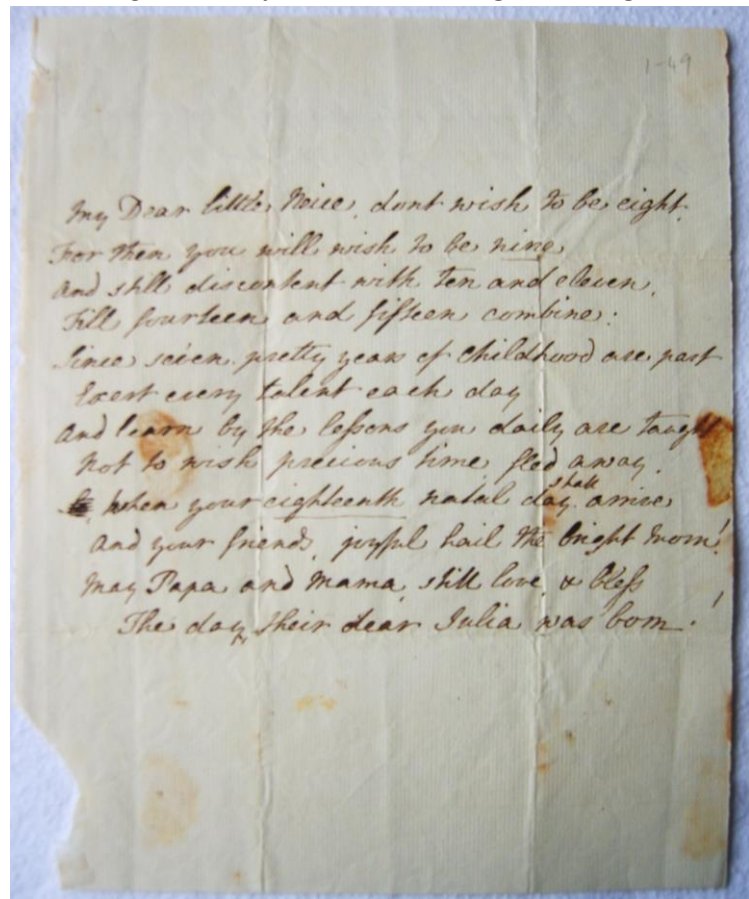 1-49
My Dear little Neice, dont wish to be eight.
For then you will wish to be nine,
And still discontent with ten and eleven,
Till fourteen and fifteen combine.
Since seven pretty years of Childhood are past
Exert every talent each day
And learn by the lessons you daily are taught
Not to wish precious time fled away.
When your eighteenth natal day shall arrive,
And your friends joyful hail the bright morn!
May Papa and Mama, still love, & bless
The day, their dear Julia was born!